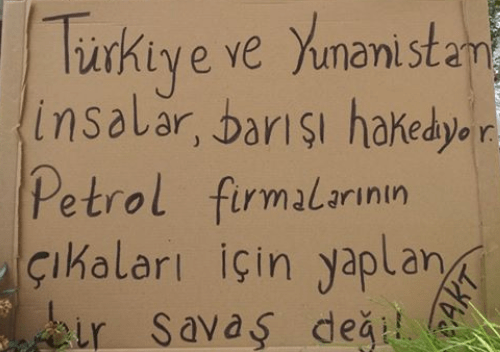 Türkiye ve Yunanistan
insalar, barışı hakediyor.
Petrol firmalarının
çıkaları için yaplan
bir savaş değil!
PAKT